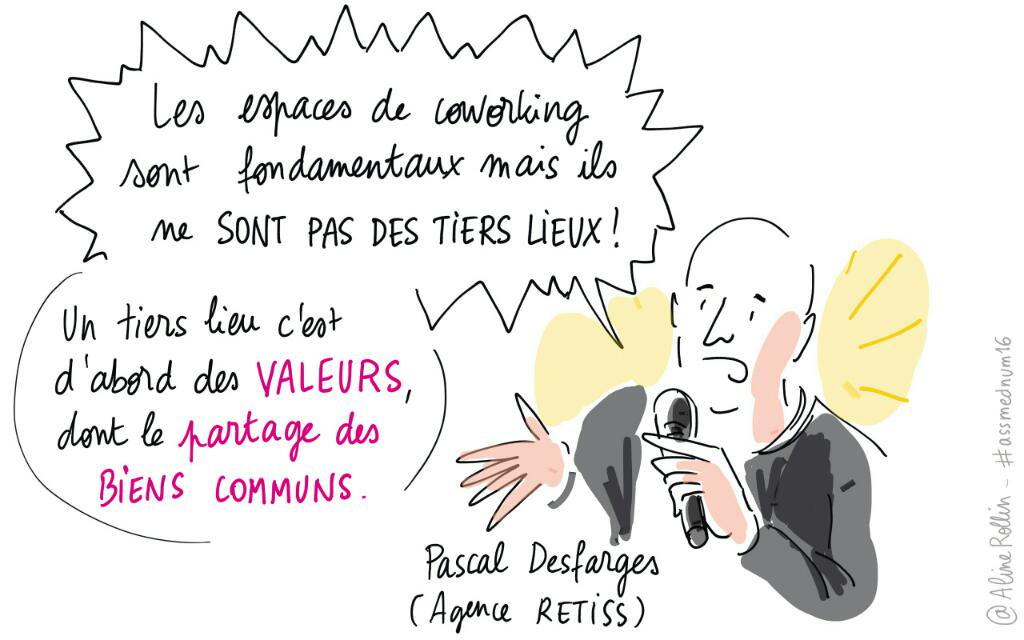 Les espaces de coworking
sont fondamentaux mais ils
ne SONT PAS DES TIERS LIEUX !
Un tiers lieu c'est
d'abord des VALEURS,
dont le partage des
BIENS COMMUNS.
Pascal Desfarges
(Agence RETISS)
@AlineRollin - #assmednum16